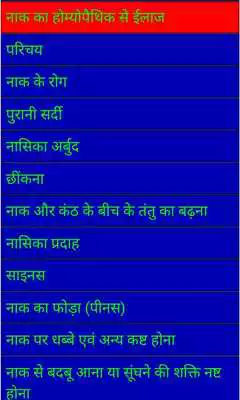 नाक का होम्योपैथिक से ईलाज
परिचय
नाक के रोग
पुरानी सर्दी
नासिका अर्बुद
छींकना
नाक और कंठ के बीच के तंतु का बढ़ना
नासिका प्रदाह
साइनस
नाक का फोड़ा (पीनस)
नाक पर धब्बे एवं अन्य कष्ट होना
नाक से बदबू आना या सूंघने की शक्ति नष्ट
होना